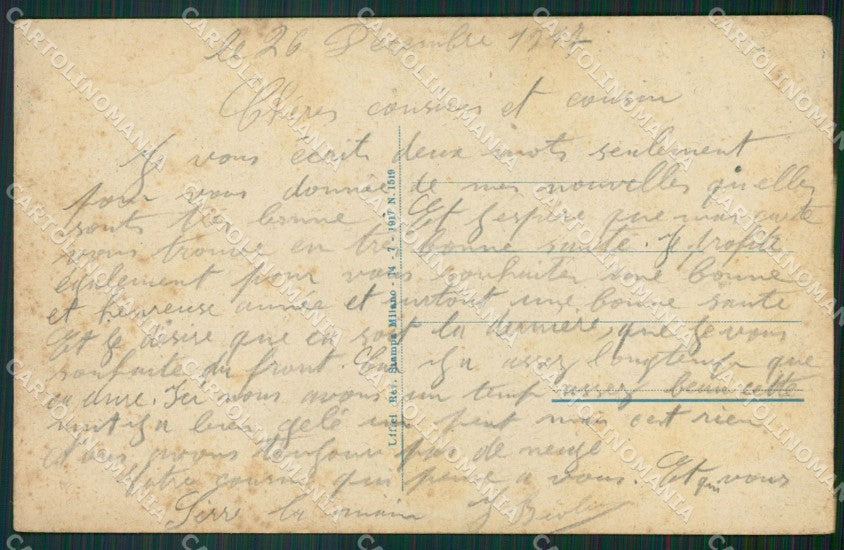 le 26 Décembre 1917
Chères cousines et cousin
Je vous écrit deux mots seulement
pour vous donnée de mes nouvelles qu'elles
sont très bonne Et J'espère que ma carte
vous trouve en très bonne santé. Je profite
également pour vous souhaiter une bonne
et heureuse année et surtout une bonne santé
Et Je désire que ca soit la dernière, que Je vous
souhaite du front. Car il y a assez longtemps que
ca dure. Ici nous avons un temp assez beau cette
nuit il a bien gelé un peut mais cest rien
nous avons toujour pas de neige
Votre cousin qui pense a vous. Et qui vous
Serre la main
Uffici Rev. Stampa Milano - 24 - 7 - 1917 N. 1519
CARTOLINOMANIA